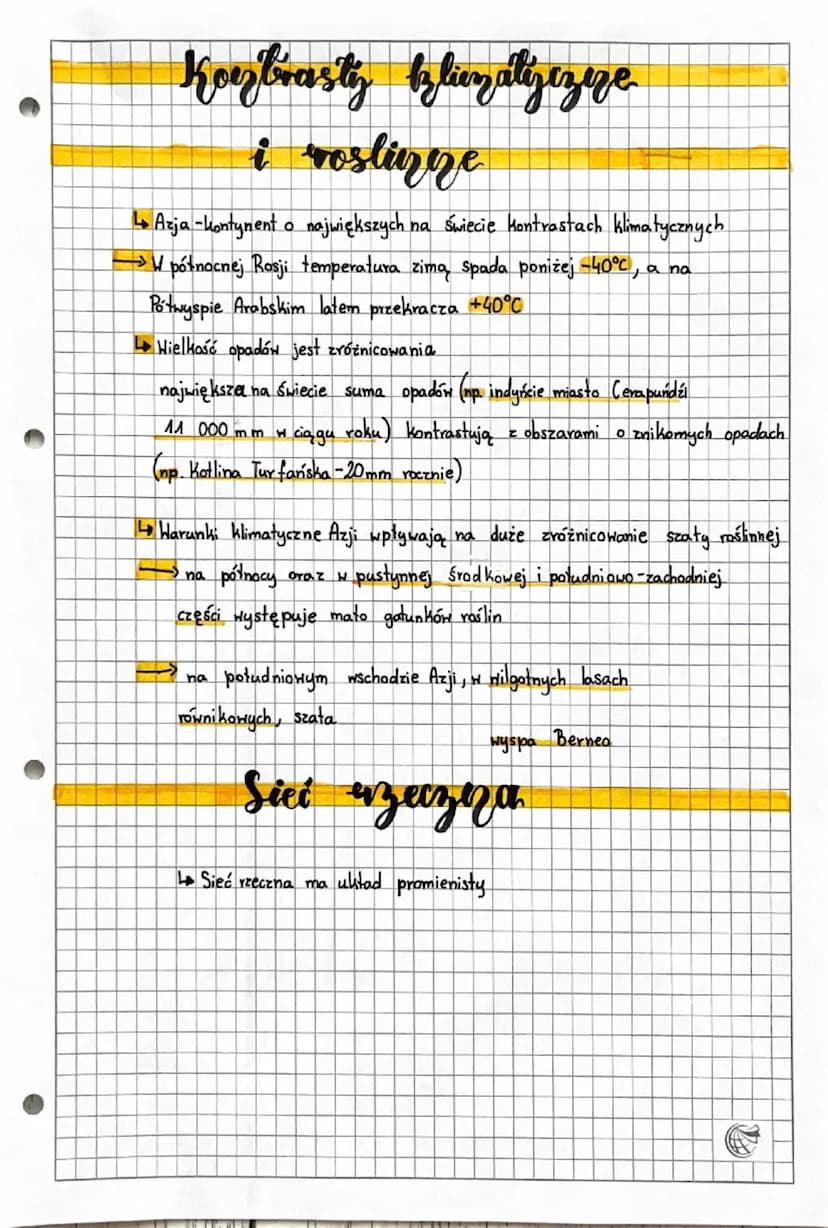 Kontrasty klimatyczne
i roslinne
↳ Azja - kontynent o największych na świecie kontrastach klimatycznych
→ W północnej Rosji temperatura zimą spada poniżej -40°C, a na
Półwyspie Arabskim latem przekracza +40°C
↳ Wielkość opadów jest zróżnicowania
największa na świecie suma opadów (np. indyjście miasto Cerapuńdżi
11 000 mm w ciągu roku) kontrastują z obszarami o znikomych opadach
(np. Kotlina Turfańska - 20mm rocznie)
↳ Warunki klimatyczne Azji wpływają na duże zróżnicowanie szaty roślinnej
→ na północy oraz w pustynnej środkowej i południowo-zachodniej
części występuje mało gatunków roślin
→ na południowym wschodzie Azji, w wilgotnych lasach
równikowych, szata
wyspa Berneo
Sieć rzeczna
↳ Sieć rzeczna ma układ promienisty